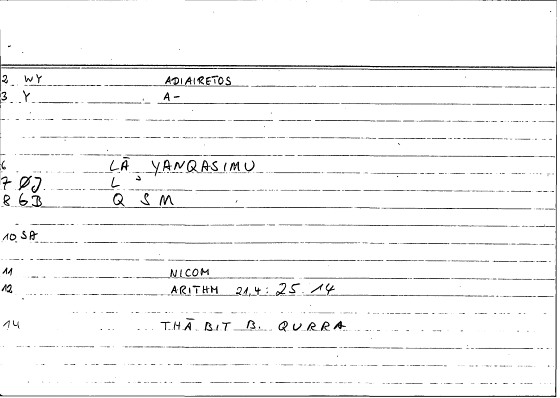 2 WY ADIAIRETOS
3 Y A-
6 LĀ YANQASIMU
7 ØJ L °
8 6B Q S M
10 SA
11 NICOM
12 ARITHM 21,4: 25 14
14 THĀBIT B. QURRA